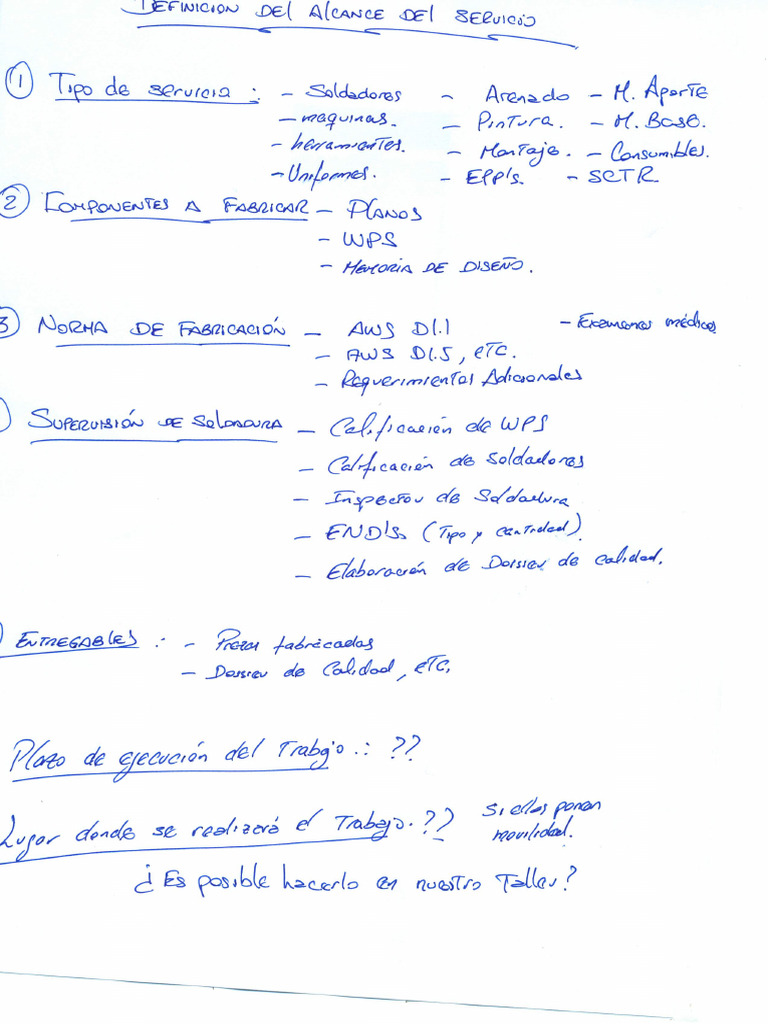 DEFINICION DEL ALCANCE DEL SERVICIO
① Tipo de servicio : - Soldadores - Arenado - M. Aporte
- maquinas. - Pintura. - M. Base.
- herramientas. - Montaje. - Consumibles.
- Uniformes. - EPP's. - SCTR.
② COMPONENTES A FABRICAR - PLANOS
- WPS
- MEMORIA DE DISEÑO.
3 NORMA DE FABRICACIÓN - AWS D1.1 - Examenes médicos
- AWS D1.5, etc.
- Requerimientos Adicionales
SUPERVISIÓN DE SOLDADURA - Calificación de WPS
- Calificación de Soldadores
- Inspector de Soldadura
- END's. (Tipo y cantidad).
- Elaboración de Dossier de calidad.
ENTREGABLES : - Piezas fabricadas
- Dossier de Calidad, etc.
Plazo de ejecución del Trabajo .: ??
Lugar donde se realizará el Trabajo. ?? Si ellos ponen
movilidad.
¿Es posible hacerlo en nuestro Taller?